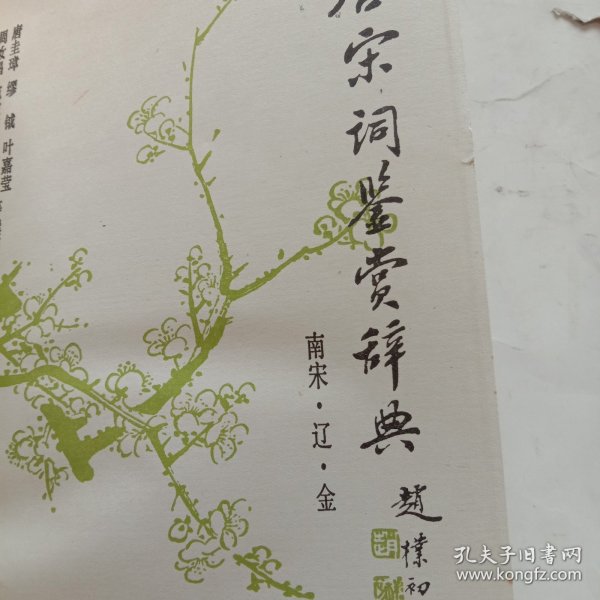 唐宋词鉴赏辞典
南宋·辽·金
赵樸初
唐圭璋 缪钺 叶嘉莹
周汝昌
孔夫子旧书网
www.kongfz.com